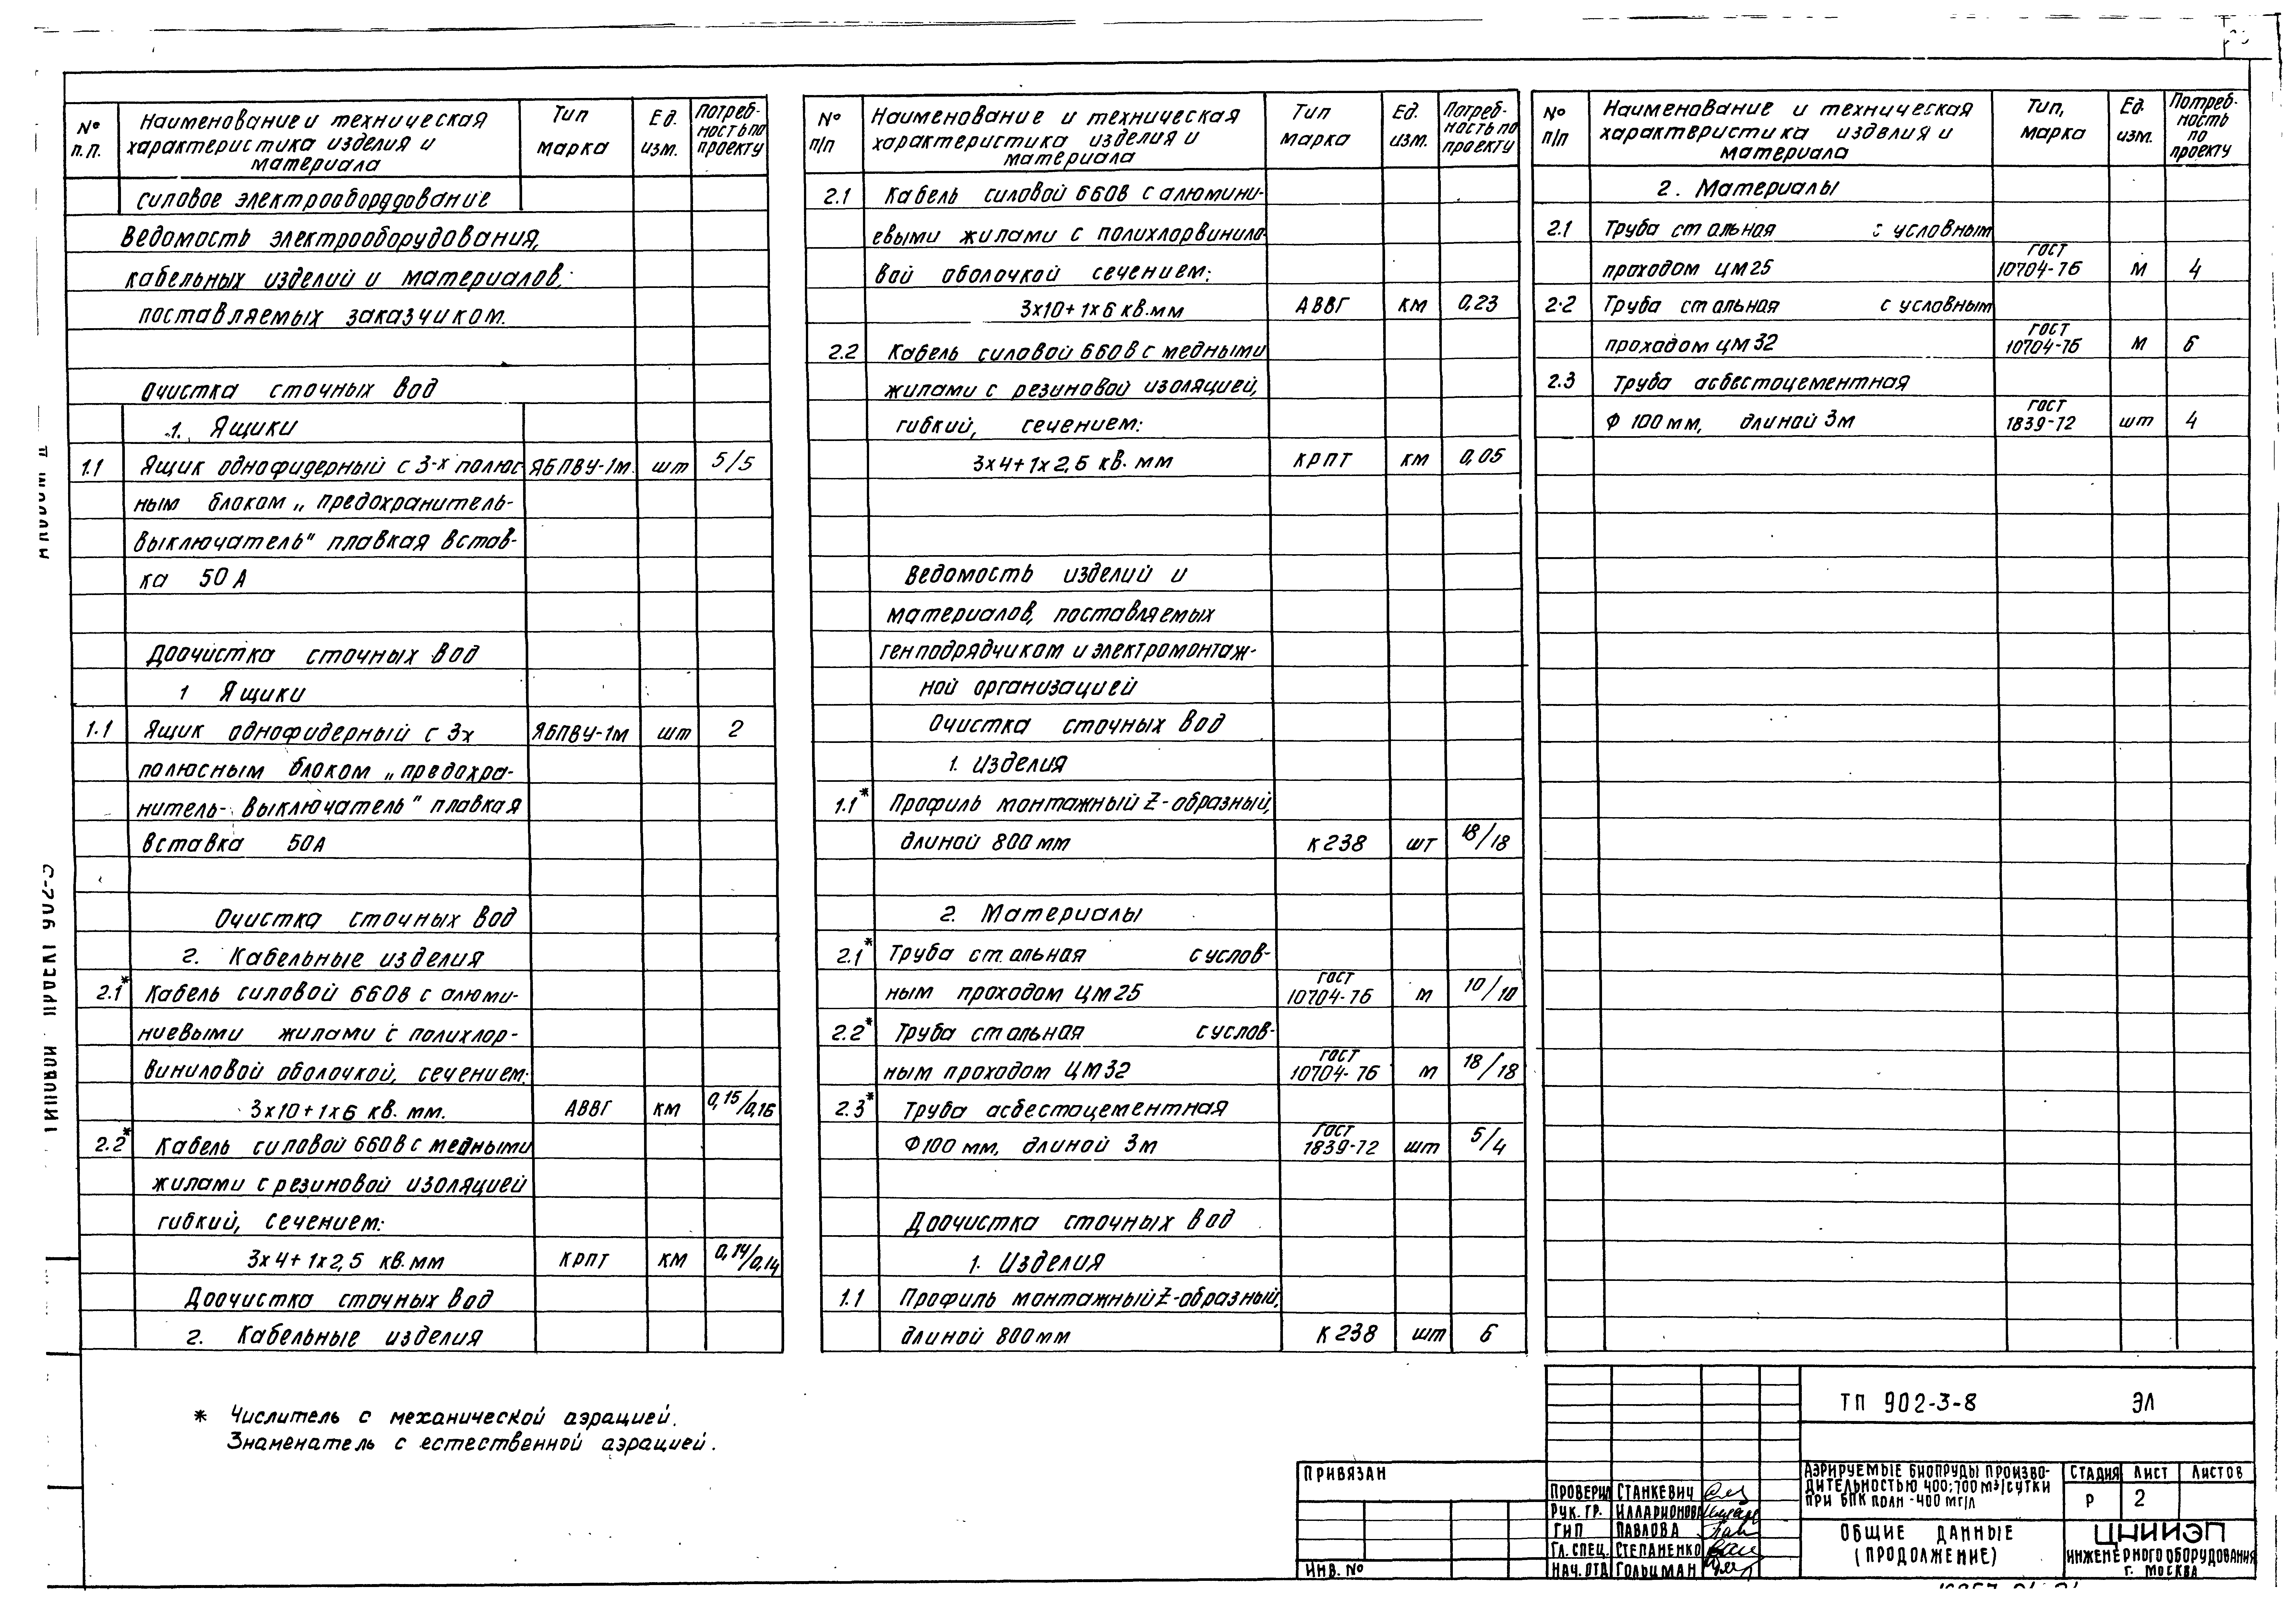 № п.п. | Наименование и техническая характеристика изделия и материала | Тип марка | Ед. изм. | Потреб-ность по проекту
силовое электрооборудование
Ведомость электрооборудования,
кабельных изделий и материалов,
поставляемых заказчиком.
Очистка сточных вод
1. Ящики
1.1 Ящик однофидерный с 3-х полюс- ЯБПВУ-1м. шт 5/5
ным блоком „предохранитель-
выключатель" плавкая встав-
ка 50 А
Доочистка сточных вод
1 Ящики
1.1 Ящик однофидерный с 3х ЯБПВУ-1м шт 2
полюсным блоком „предохра-
нитель-выключатель" плавкая
вставка 50А
Очистка сточных вод
2. Кабельные изделия
2.1* Кабель силовой 660в с алюми-
ниевыми жилами с полихлор-
виниловой оболочкой, сечением:
3х10+1х6 кв. мм. АВВГ км 0,15/0,16
2.2* Кабель силовой 660в с медными
жилами с резиновой изоляцией
гибкий, сечением:
3х4+1х2,5 кв.мм КРПТ км 0,14/0,14
Доочистка сточных вод
2. Кабельные изделия
№ п/п | Наименование и техническая характеристика изделия и материала | Тип марка | Ед. изм. | Потреб-ность по проекту
2.1 Кабель силовой 660в с алюмини-
евыми жилами с полихлорвинило-
вой оболочкой сечением:
3х10+1х6 кв.мм АВВГ км 0,23
2.2 Кабель силовой 660в с медными
жилами с резиновой изоляцией,
гибкий, сечением:
3х4+1х2,5 кв. мм КРПТ км 0,05
Ведомость изделий и
материалов, поставляемых
генподрядчиком и электромонтаж-
ной организацией
Очистка сточных вод
1. Изделия
1.1* Профиль монтажный Z-образный,
длиной 800 мм К238 шт 18/18
2. Материалы
2.1* Труба стальная с услов-
ным проходом ЦМ25 ГОСТ 10704-76 м 10/10
2.2* Труба стальная с услов-
ным проходом ЦМ32 ГОСТ 10704-76 м 18/18
2.3* Труба асбестоцементная
Ф100 мм, длиной 3м ГОСТ 1839-72 шт 5/4
Доочистка сточных вод
1. Изделия
1.1 Профиль монтажный Z-образный,
длиной 800мм К238 шт 6
№ п/п | Наименование и техническая характеристика изделия и материала | Тип, марка | Ед изм. | Потреб-ность по проекту
2. Материалы
2.1 Труба стальная с условным
проходом ЦМ25 ГОСТ 10704-76 м 4
2.2 Труба стальная с условным
проходом ЦМ32 ГОСТ 10704-76 м 6
2.3 Труба асбестоцементная
Ф 100 мм, длиной 3м ГОСТ 1839-72 шт 4
* Числитель с механической аэрацией.
Знаменатель с естественной аэрацией.
ПРИВЯЗАН
ИНВ. №
ПРОВЕРИЛ СТАНКЕВИЧ
РУК. ГР. ИЛЛАРИОНОВА
ГИП ПАВЛОВА
ГЛ. СПЕЦ. СТЕПАНЕНКО
НАЧ. ОТД ГОЛЬЦМАН
ТП 902-3-8 ЭЛ
АЭРИРУЕМЫЕ БИОПРУДЫ ПРОИЗВО-
ДИТЕЛЬНОСТЬЮ 400;700 М³/СУТКИ
ПРИ БПК ПОЛН -400 МГ/Л
СТАДИЯ ЛИСТ ЛИСТОВ
Р 2
ОБЩИЕ ДАННЫЕ
(ПРОДОЛЖЕНИЕ)
ЦНИИЭП
ИНЖЕНЕРНОГО ОБОРУДОВАНИЯ
Г. МОСКВА
ТИПОВОЙ ПРОЕКТ 902-